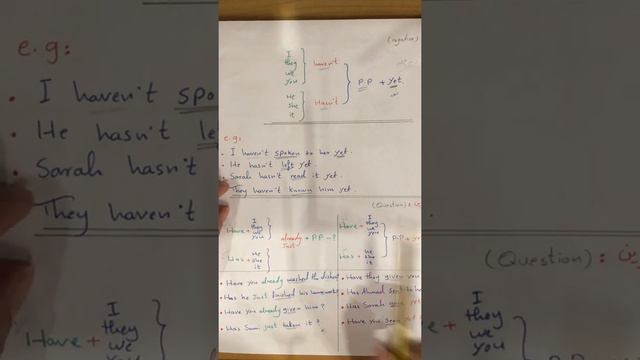 (negative)
I
they
we
you
haven't
He
she
it
Hasn't
P.P + yet.
e.g:
• I haven't spoken to her yet.
• He hasn't left yet.
• Sarah hasn't read it yet.
They haven't known him yet.
(Question):
Have +
I
they
we
you
Has +
he
she
it
already
Just
+ P.P - ?
Have +
I
they
we
you
Has +
he
she
it
P.P +
• Have you already washed the dishes
• Has he Just finished his homework
• Have you already given him?
• Has Sam just taken it?
• Have they given
• Has Ahmad sent to
• Has Sarah
• Have you seen